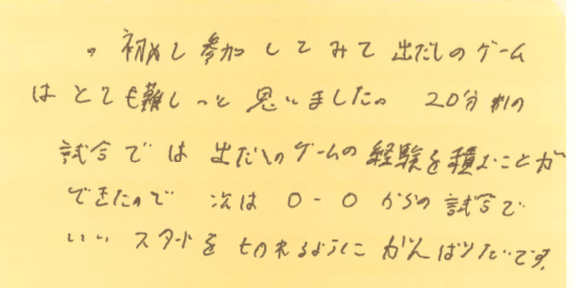 。初めし参加してみて出だしのゲーム
はとても難しっと思いました。20分制の
試合では出だしのゲームの経験を積むことが
できたので 次は0-0からの試合で
いいスタートをきれるようにがんばりたいです。